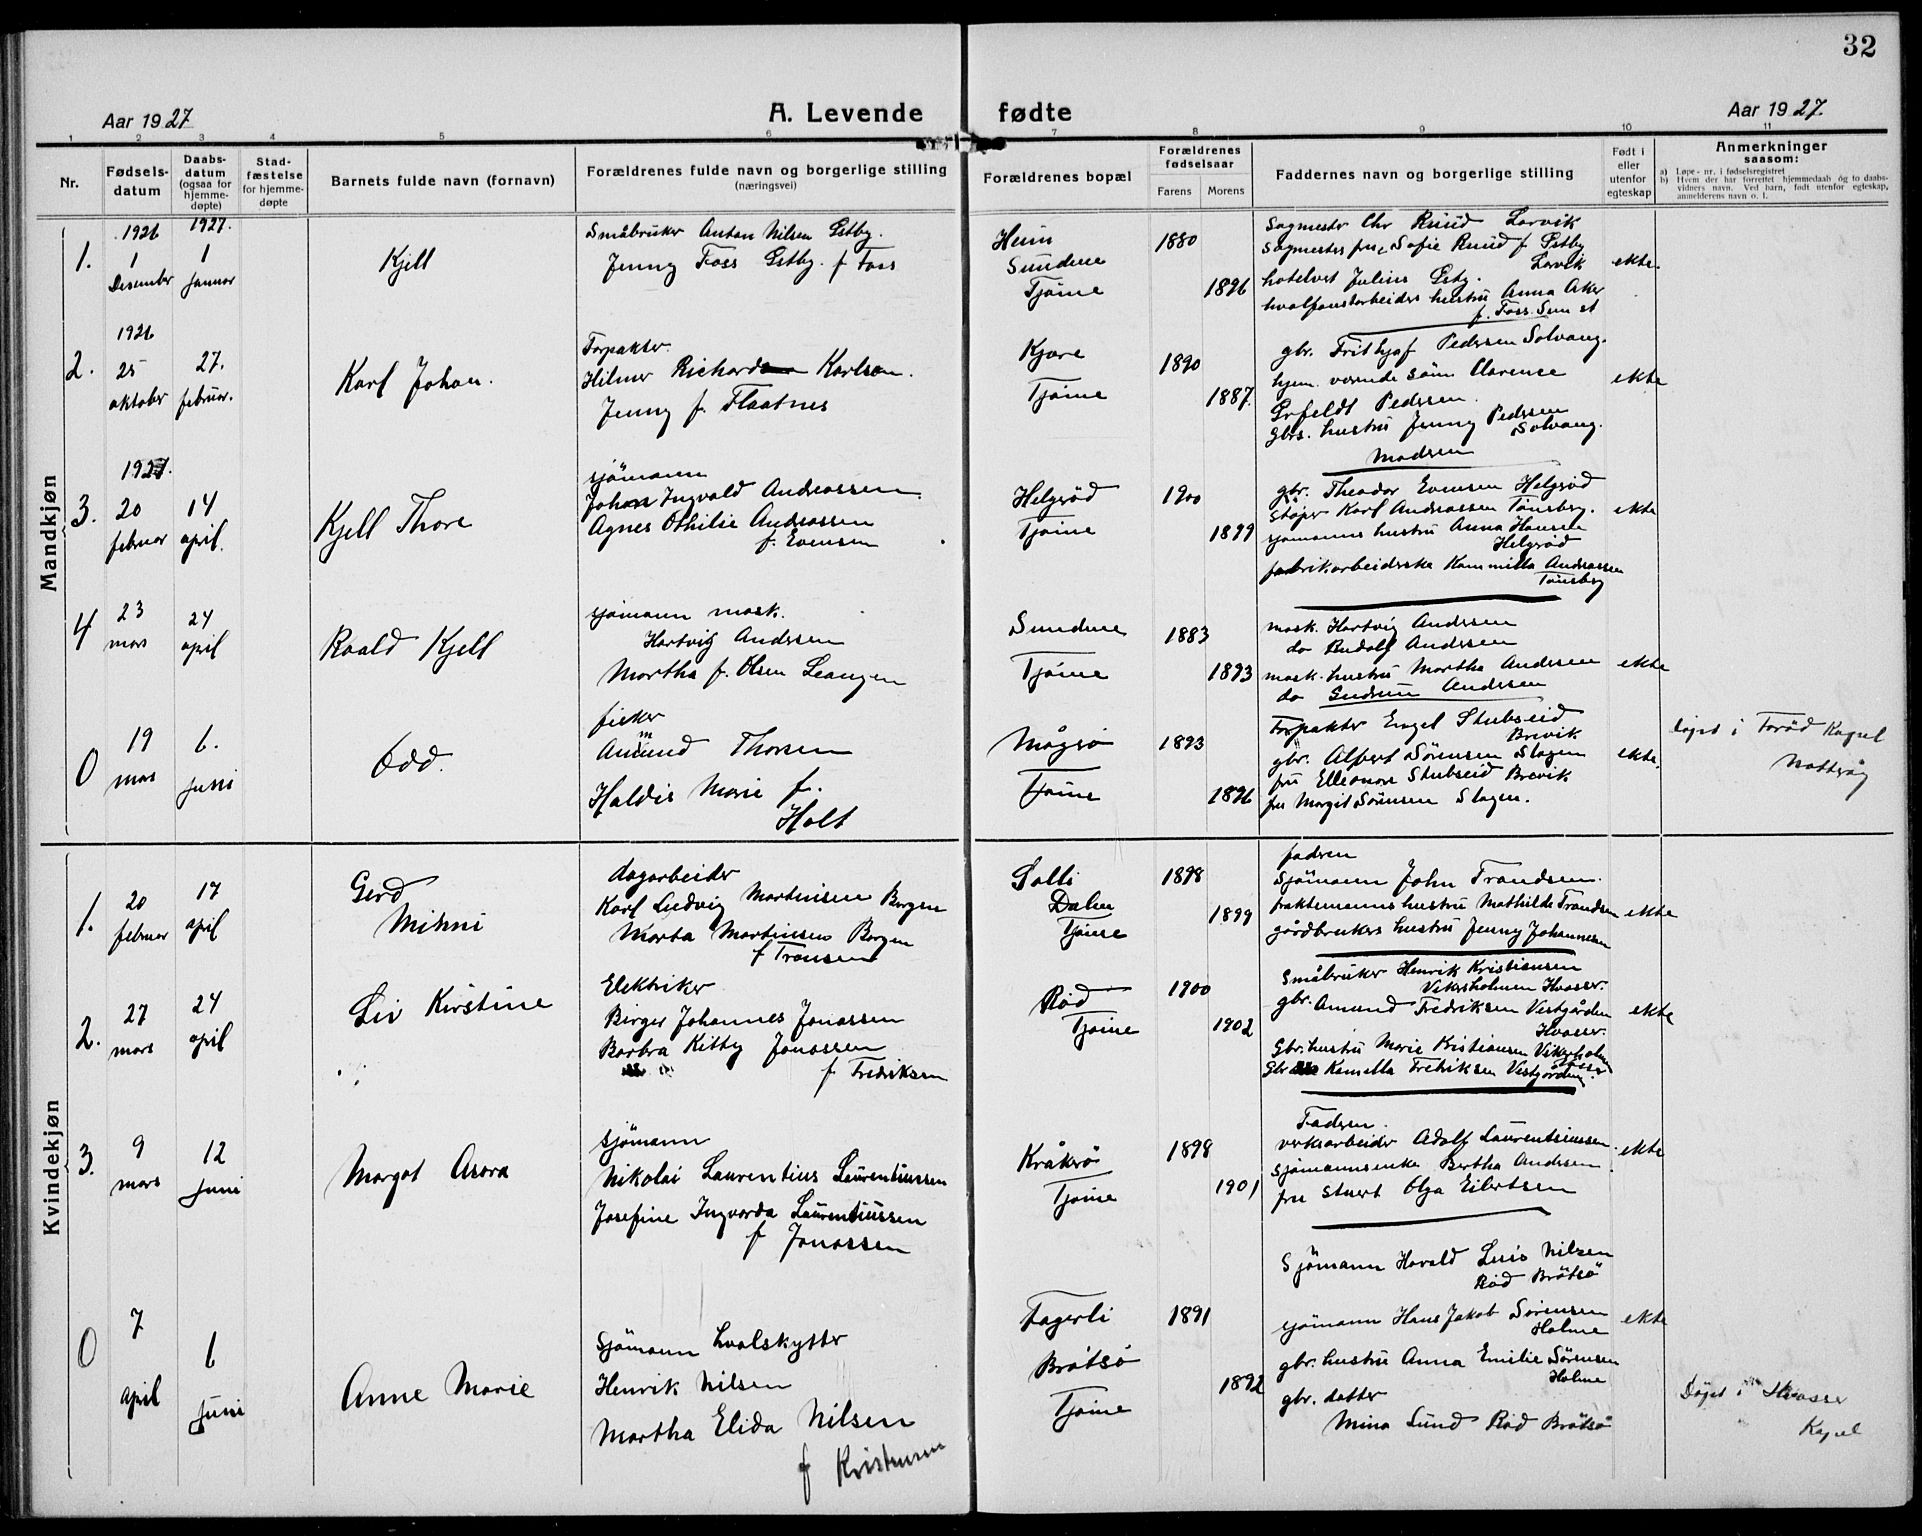 32
Aar 1927
A. Levende fødte
Aar 1927.
1 2 3 4 5 6 7 8 9 10 11
Nr.
Fødsels-
datum
Daabs-
datum
(ogsaa for
hjemme-
døpte)
Stad-
fæstelse
for hjemme-
døpte
Barnets fulde navn (fornavn)
Forældrenes fulde navn og borgerlige stilling
(næringsvei)
Forældrenes bopæl
Forældrenes
fødselsaar
Farens Morens
Faddernes navn og borgerlige stilling
Født i
eller
utenfor
egteskap
Anmerkninger
saasom:
a) Løpe-nr. i fødselsregistret
b) Hvem der har forrettet hjemmedaab og to daabs-
vidners navn. Ved barn, født utenfor egteskap,
anmelderens navn o. l.
Mandkjøn
1.
1926
1
Desember
1927.
1
Januar
Kjell
Småbruker Anton Nilsen Estby.
Jenny Foss Estby. f Foss
Heim
Sundene
Tjøme
1880
1896
Sagmester Chr Ruud Larvik
Sagmester frue Sofie Ruud f Estby
Larvik
hotelvert Julius Estby.
hvalfangstarbeiders hustru Anna Aker
f. Foss. Sem st
ekte.
2.
1926
25
oktober
27.
februar.
Karl Johan.
Forpakter.
Hilmer Richard Karlsen.
Jenny f. Flaatnes
Kjære
Tjøme
1890
1887.
gbr. Frithjof Pedersen Solvang.
hjem. værende sønn Clarence
Grfeldt Pedersen.
Gbrs. hustru Jenny Pedersen
Solvang.
ekte
3.
1927.
20
februar
14
april.
Kjell Thore
sjømann
Johan Ingvald Andreassen
Agnes Othilie Andreassen
f. Evensen
Helgerød
Tjøme
1900
1899
Madsen
gbr. Theodor Evensen Helgerød
Støper Karl Andreassen Tønsberg.
sjømanns hustru Anna Hansen
Helgerød
fabrikarbeiderske Kammilla Andreassen
Tønsberg
ekte
4
23
mars
24
april
Roald Kjell
sjømann mask.
Hartvig Andersen
Martha f. Olsen Leangen
Sundene
Tjøme
1883
1893
mask. Hartvig Andersen
do Rudolf Andersen
mask. hustru Martha Andersen
do Gudrun Andersen
ekte
0
19
mars
6.
Juni
Odd.
fisker
Amund Thorsen
Haldis Marie f.
Holt
Mågerø
Tjøme
1893
1896
Forpakter Engel Stubseid
Brevik
gbr. Alfert Sørensen Slagen
fru Elleonore Stubseid Brevik
fru Margit Sørensen Slagen.
ekte.
døpt i Torød Kapel
Nøtterøy
Kvindekjøn
1.
20
februar
17
april
Gerd
Minni
dagarbeider
Karl Ludvig Martinsen Borgen
Marta Martinsen Borgen
f Fransen
Solli
Dalen
Tjøme
1898
1899
fadren
Sjømann John Frandsen.
fraktemanns hustru Mathilde Frandsen
gårdbrukers hustru Jenny Johannesen
ekte
2.
27
mars
24
april
Liv Kirstine
Elektriker
Birger Johannes Jonassen
Borbra Kitty Jonassen
f Fredriksen
Rød
Tjøme
1900
1902
Småbruker Henrik Kristiansen
Vikerholmen Hvasser.
gbr. Amund Fredriksen Vestgården
Hvasser.
Gbr. hustru Marie Kristiansen Vikerholmen
Gbr Kamilla Fredriksen Vestgården.
Hvasser
ekte
3.
9
mars
12
Juni
Margot Asora
sjømann
Nikolai Laurentius Laurentiussen
Josefine Ingvarda Laurentiussen
f Jonassen
Kråkerø
Tjøme
1898
1901
Fadren.
verksarbeider Adolf Laurentiussen.
sjømannsenke Bertha Andersen
fru stuert Olga Eilertsen
ekte
0
7
april
6
Juni
Anne Marie
Sjømann hvalskytter
Henrik Nilsen
Martha Elida Nilsen
f Kristensen
Fagerli
Brøtsø
Tjøme
1891
1892
Sjømann Harald Luis Nilsen
Rød Brøtsø
sjømann Hans Jakob Sørensen
Holme
gbr. hustru Anna Emilie Sørensen
Holme
gbr. datter
Mina Lund Rød Brøtsø
ekte
Døpt i Hvasser
Kapel